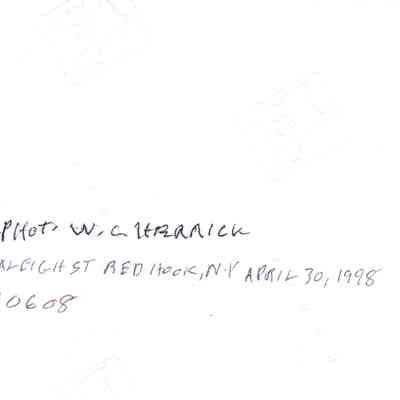 PHOT. W. C HERRICK
RALEIGH ST RED HOOK, N.Y APRIL 30, 1998
0608